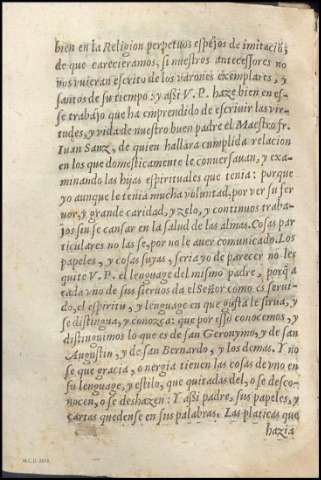 bien en la Religion perpetuos espejos de imitaciõ;
de que careciéramos, si nuestros antecessores no
nos vuieran escrito de los varones exemplares, y
santos de su tiempo: y aßi V. P. haze bien en es-
se trabajo que ha emprendido de escriuir las vir-
tudes, y vida de nuestro buen padre el Maestro fr.
Iuan Sanz, de quien hallara cumplida relacion
en los que domesticamente le conuersauan, y exa-
minando las hijas espirituales que tenia: porque
yo aunque le tenia mucha voluntad, por ver su fer
uor, y grande caridad, y zelo, y continuos traba-
jos sin se cansar en la salud de las almas. Cosas par
ticulares no las se, por no le auer comunicado. Los
papeles, y cosas suyas, seria yo de parecer no les
quite V. P. el lenguage del mismo padre, porq̃ a
cada vno de sus sieruos da el Señor como es serui-
do, el espiritu, y lenguage en que gusta le sirua, y
se distingua, y conozca: que por esso conocemos, y
distinguimos lo que es de san Geronymo, y de san
Augustin, y de san Bernardo, y los demas. Y no
se que gracia, o nergia tienen las cosas de vno en
su lenguage, y estilo, que quitadas del, o se desco-
nocen, o se deshazen: Y aßi padre, sus papeles, y
cartas quedense en sus palabras. Las platicas que
hazia